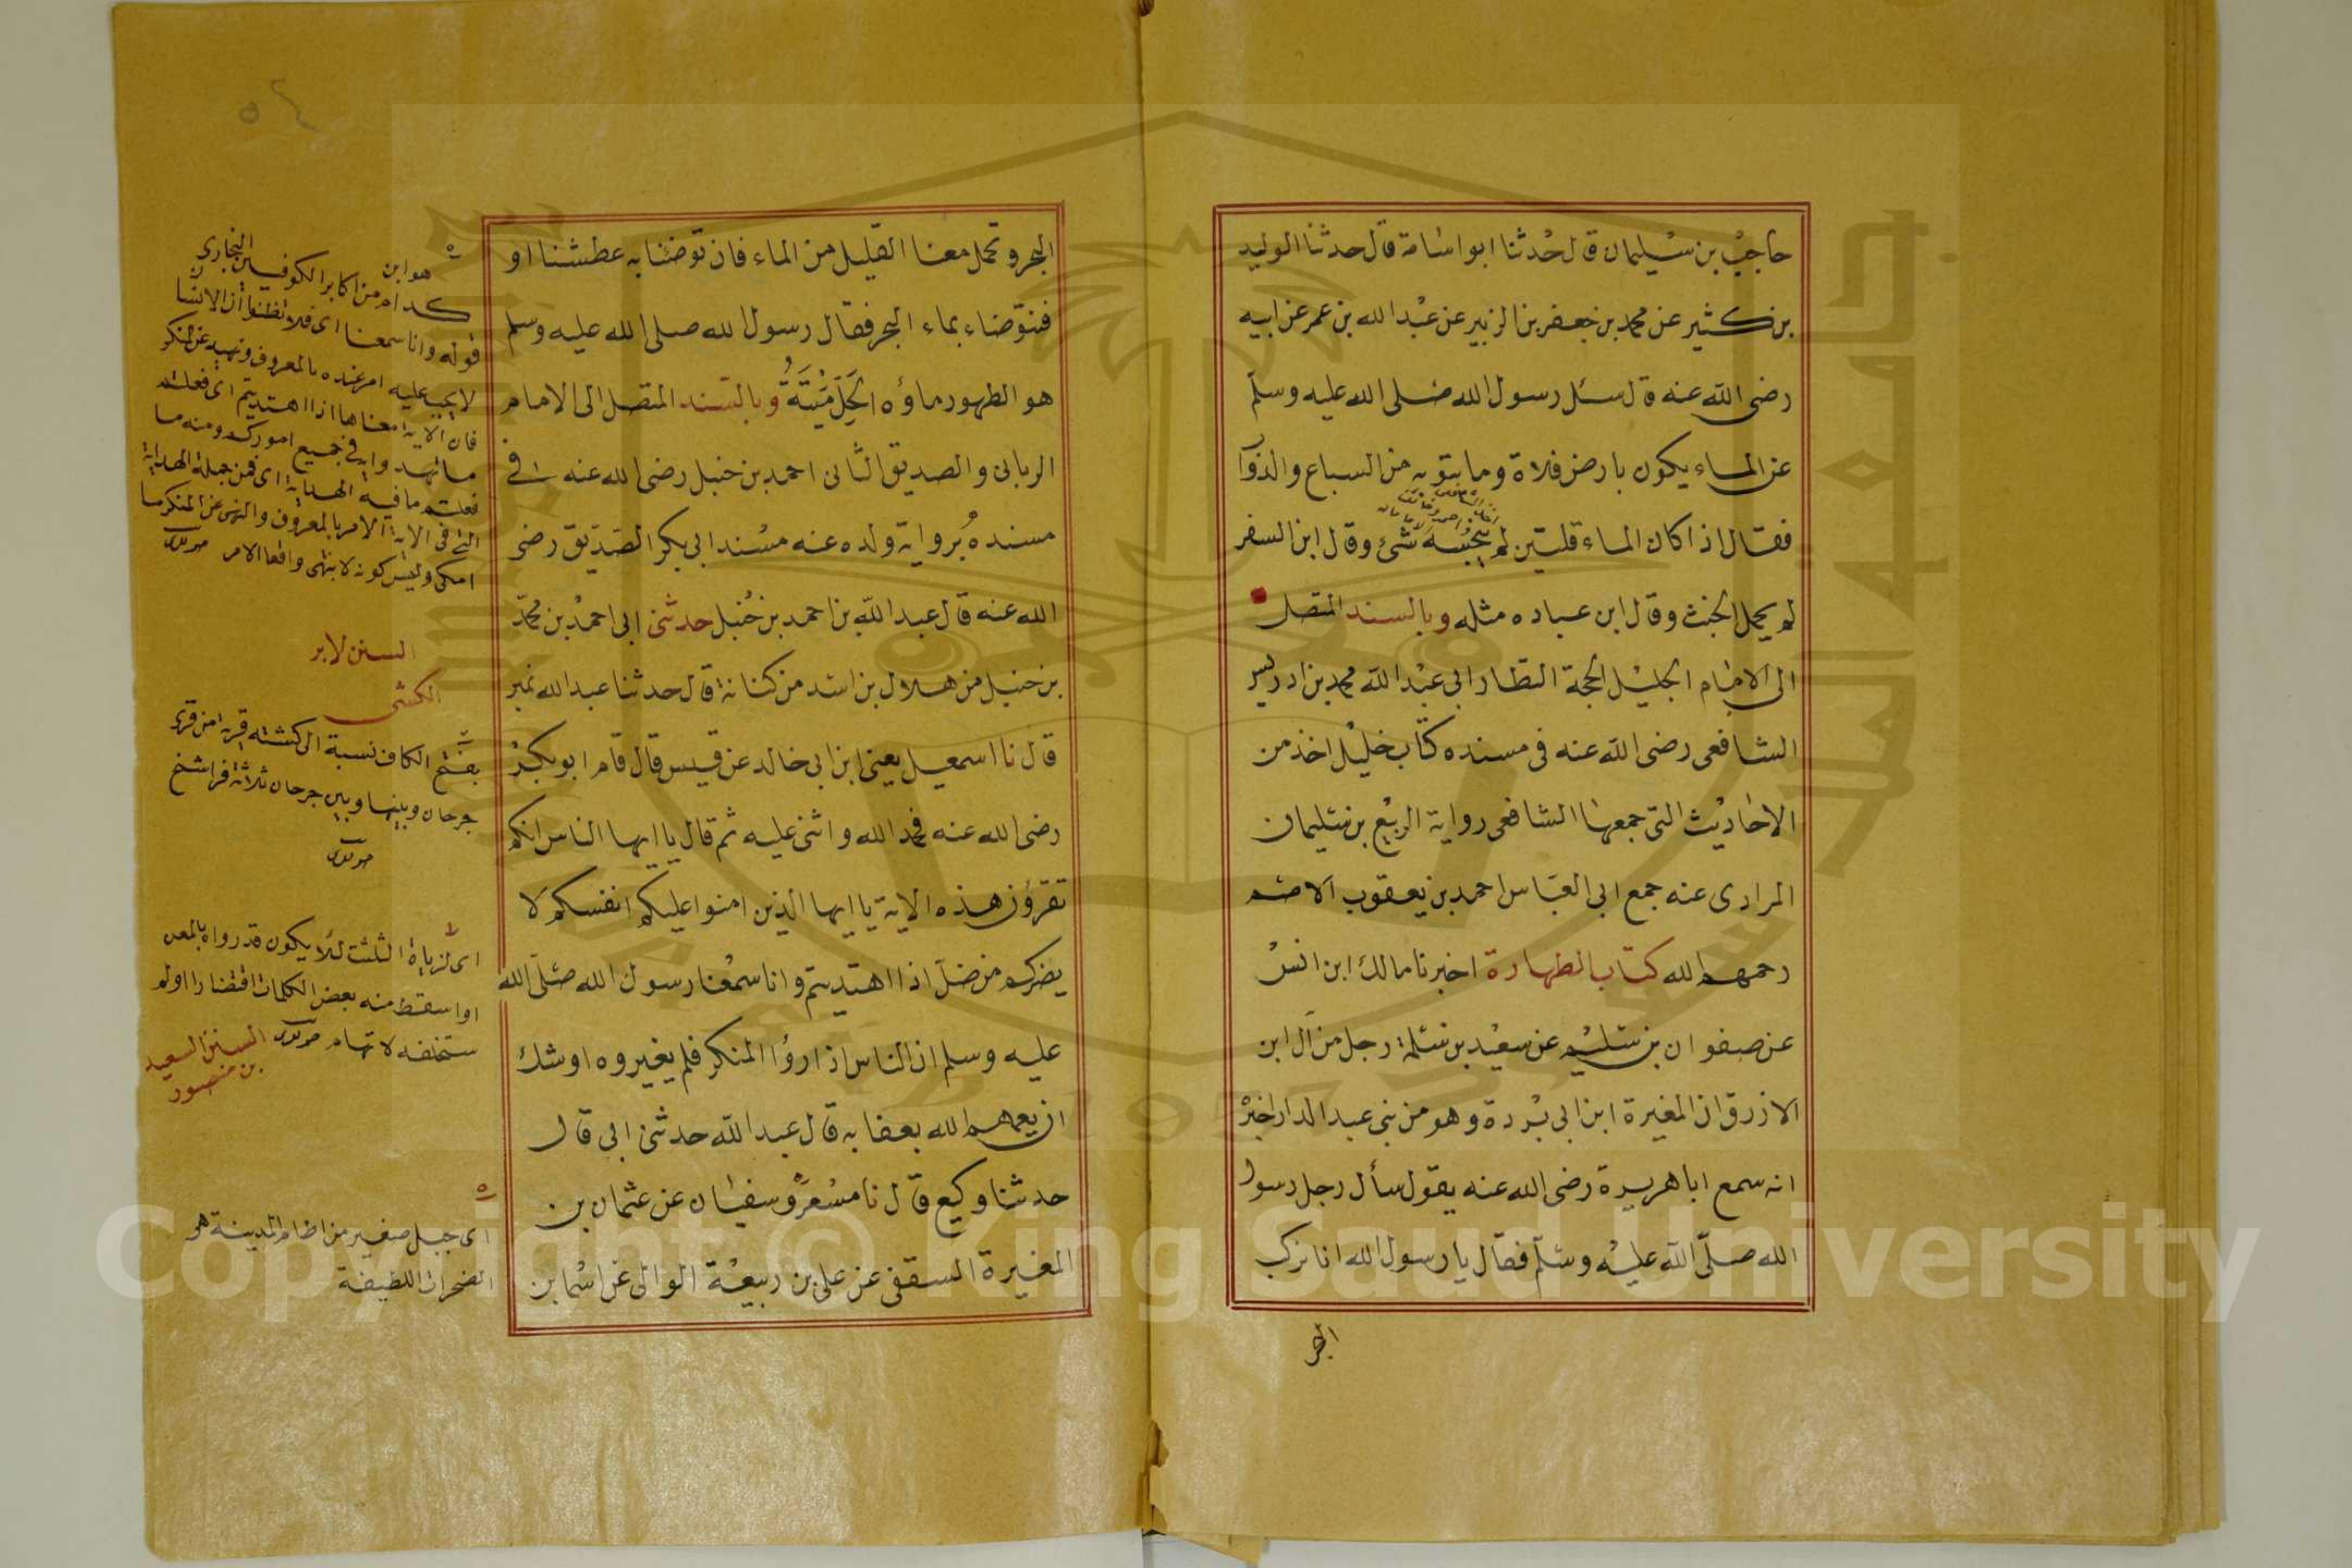 حاجب بن سليمان قال حدثنا ابو اسامة قال حدثنا الوليد
بن كثير عن محمد بن جعفر بن الزبير عن عبد الله بن عمر عن ابيه
رضى الله عنه قال سئل رسول الله صلى الله عليه وسلم
عن الماء يكون بارض فلاة وما ينوبه من السباع والدواب
فقال اذا كان الماء قلتين لم ينجسه شئ وقال ابن السفر
لم يحمل الخبث وقال ابن عباده مثله وبالسند المتصل
الى الامام الجليل الحجة النظار ابى عبد الله محمد بن ادريس
الشافعى رضى الله عنه فى مسنده كتاب خليل اخذ من
الاحاديث التى جمعها الشافعى رواية الربيع بن سليمان
المرادى عنه جمع ابى العباس احمد بن يعقوب الاصم
رحمهم الله كتاب الطهارة اخبرنا مالك ابن انس
عن صفوان بن سليم عن سعيد بن سلمة رجل من آل ابن
الازرق ان المغيرة ابن ابى بردة وهو من بنى عبد الدار اخبره
انه سمع ابا هريرة رضى الله عنه يقول سأل رجل رسول
الله صلى الله عليه وسلم فقال يا رسول الله انا نركب
البحر
البحر ونحمل معنا القليل من الماء فان توضئنا به عطشنا او
فنوضاء بماء البحر فقال رسول الله صلى الله عليه وسلم
هو الطهور ماؤه الحل ميتته وبالسند المتصل الى الامام
الربانى والصديق الثانى احمد بن حنبل رضى الله عنه فى
مسنده برواية ولده عنه مسند ابى بكر الصديق رضى
الله عنه قال عبد الله بن احمد بن حنبل حدثنى ابى احمد بن محمد
بن حنبل من هلال بن اسد من كتابه قال حدثنا عبد الله نمير
قال نا اسمعيل يعنى ابن ابى خالد عن قيس قال قام ابو بكر
رضى الله عنه فحمد الله واثنى عليه ثم قال يا ايها الناس انكم
تقرؤن هذه الاية يا ايها الذين امنوا عليكم انفسكم لا
يضركم من ضل اذا اهتديتم وانا سمعنا رسول الله صلى الله
عليه وسلم ان الناس اذا رؤا المنكر فلم يغيروه اوشك
ان يعمهم الله بعقابه قال عبد الله حدثنى ابى قال
حدثنا وكيع قال نا مسعر وسفيان عن عثمان بن
المغيرة السقفى عن على بن ربيعة الوالى عن اسما بن
هو ابن
كدام من اكابر الكوفيين
قوله وانا سمعنا اى فلا تظنوا ان الانسان
لا يجب عليه امر غيره بالمعروف ونهيه عن المنكر
فان الاية معناها اذا اهتديتم اى فعلتم
فعلتم ما فيه الهداية اى فمن جملة الهداية
التى فى الاية الامر بالمعروف والنهى عن المنكر ما
السنن لابى
الكشى
بفتح الكاف نسبة الى كشته قرية من قرى
جرجان وبينها وبين جرجان ثلاثة فراسخ
او اسقط منه بعض الكلمات اقتصارا او لم
السنن السعيد
بن منصور
اى جبل صغير من
الصخرات اللطيفة
Copyright © King Saud University
1957